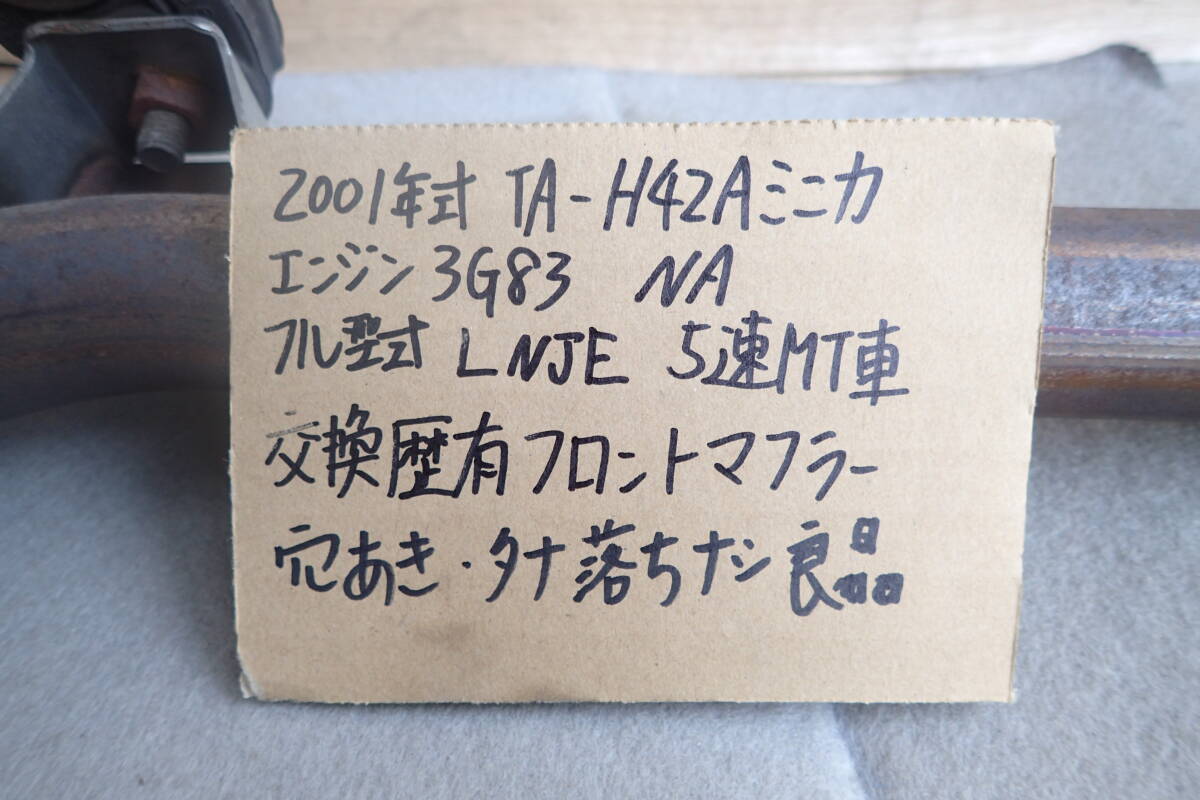 2001年式 TA-H42Aミニカ
エンジン3G83 NA
フル型式 LNJE 5速MT車
交換歴有フロントマフラー
穴あき・タナ落ちナシ良品